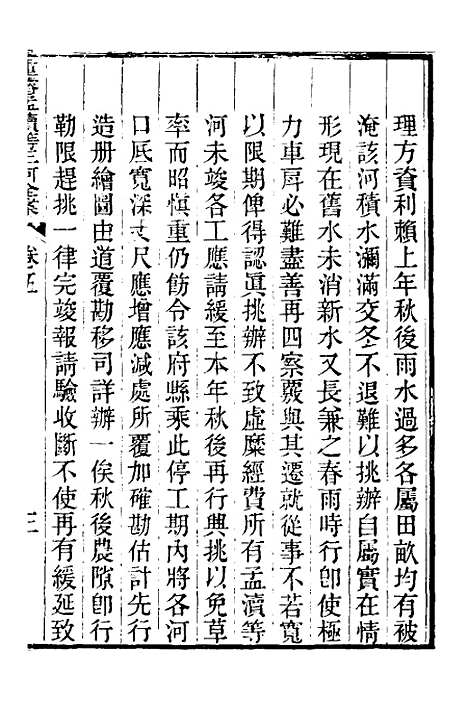 理方資利賴上年秋後雨水過多各屬田畝均有被
淹該河積水瀰滿交冬不退難以挑辦自屬實在情
形現在舊水未消新水又長兼之春雨時行卽使極
力車戽必難盡善再四察覈與其遷就從事不若寬
以限期俾得認眞挑辦不致虛糜經費所有孟瀆等
河未竣各工應請緩至本年秋後再行興挑以免草
率而昭愼重仍飭令該府縣乘此停工期內將各河
口底寬深丈尺應增應減處所覆加確勘估計先行
造册繪圖由道覆勘移司詳辦一俟秋後農隙卽行
勒限趕挑一律完竣報請驗收斷不使再有緩延致
重濬孟瀆等三河全案
卷之五
三